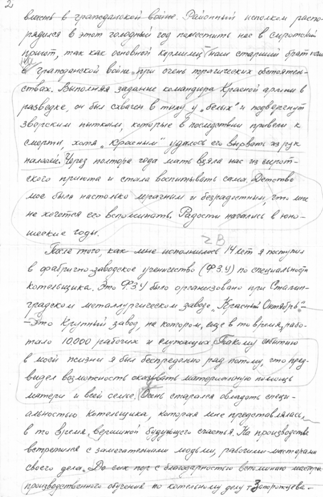 2
власть в гражданской войне. Районный исполком распо-
рядился в этот голодный год поместить нас в сиротский
приют, так как основной кормилец (наш старший брат
в гражданской войне, при очень трагических обстоятель-
ствах. Выполняя задание командира Красной армии в
разведке, он был схвачен в тылу у „белых" и подвергнут
зверским пыткам, которые в последствии привели к
смерти, хотя „красным" удалось его вырвать из рук
палачей. Через полтора года мать взяла нас из сирот-
ского приюта и стала воспитывать сама. Детство
мое было настолько мрачным и безрадостным, что мне
не хочется его вспоминать. Радости начались в юно-
шеские годы.
28
После того, как мне исполнилось 14 лет я поступил
в фабрично-заводское ученичество (ФЗУ) по специальности
котельщика. Это ФЗУ было организовано при Сталин-
градском металлургическом заводе „Красный Октябрь"-
-Это крупный завод, на котором, еще в то время, рабо-
тало 10000 рабочих и служащих. Такому событию
в моей жизни я был беспредельно рад потому, что пред-
видел возможность оказывать материальную помощь
матери и всей семье. Очень старался овладеть специ-
альностью котельщика, которая мне представлялась,
в то время, вершиной будущего счастья. На производстве
встретился с замечательными людьми, рабочими-мастерами
своего дела. До сих пор с благодарностью вспоминаю мастера
производственного обучения по котельному делу т.